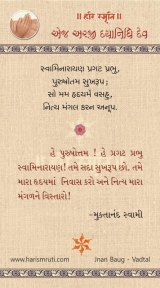 ॥ હરિ સ્મૃતિ ॥
એજ અરજી દયાનિધિ દેવ
સ્વામિનારાયણ પ્રગટ પ્રભુ,
પુરુષોત્તમ સુખરૂપ;
સો મમ હૃદયમેં વસહુ,
નિત્ય મંગલ કરન અનૂપ.
હે પુરુષોત્તમ ! હે પ્રગટ પ્રભુ
સ્વામિનારાયણ! તમે સદા સુખરૂપ છો. તમે
મારા હૃદયમાં નિવાસ કરો અને નિત્ય મારા
મંગળને વિસ્તારો!
-મુક્તાનંદ સ્વામી
www.harismruti.com
Jnan Baug - Vadtal